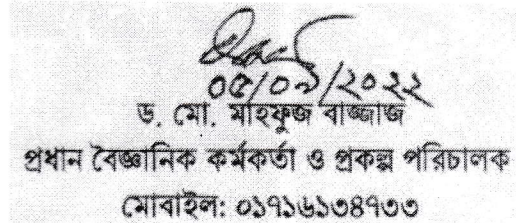 ০৫/০৯/২০২২
ড. মো. মাহফুজ বাজ্জাজ
প্রধান বৈজ্ঞানিক কর্মকর্তা ও প্রকল্প পরিচালক
মোবাইল: ০১৭১৬১৩৪৭৩৩